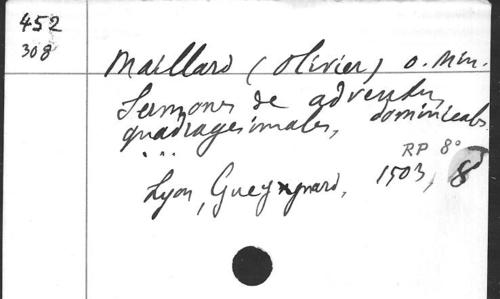 452
308
Maillard (Olivier) O. Min.
Sermones de adventu,
quadragesimales, dominicales
" " "
RP 8°
Lyon, Gueynard, 1503, 8°